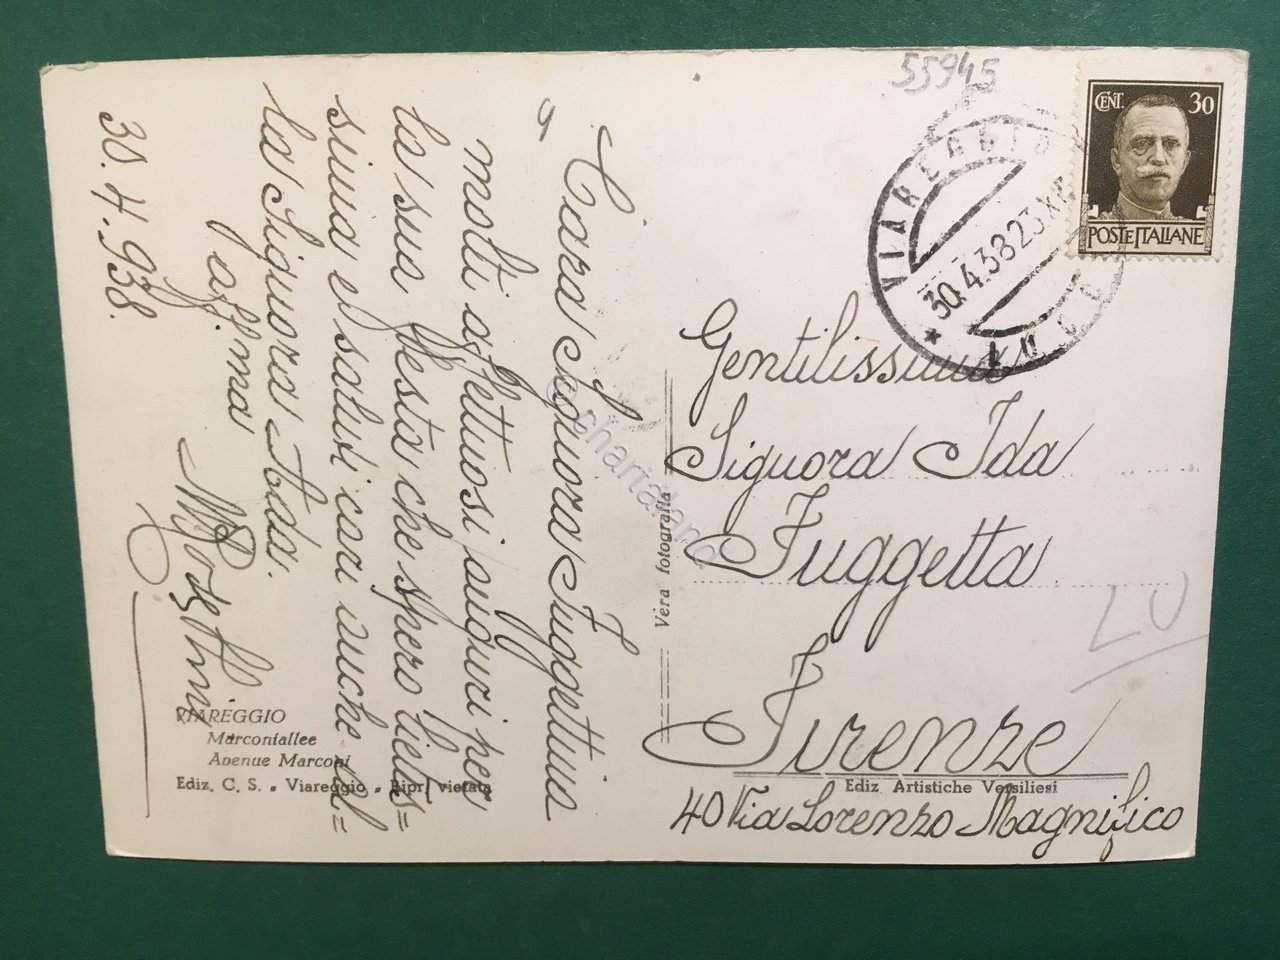 55945
CENT. 30
POSTE ITALIANE
VIAREGGIO
30.4.38 23 XVI
LUCCA
Gentilissima
Signora Ida
Fuggetta
Firenze
40 Via Lorenzo Magnifico
Ediz. Artistiche Versiliesi
Vera fotografia
Cara Signora Fuggettina
molti affettuosi auguri per
la sua festa che spero lietis=
sima e saluti cari anche al=
la Signora Dodi.
aff.ma
30.4.938.
VIAREGGIO
Marconiallee
Avenue Marconi
Ediz. C. S. - Viareggio - Ripr. vietata
chartaland
LU